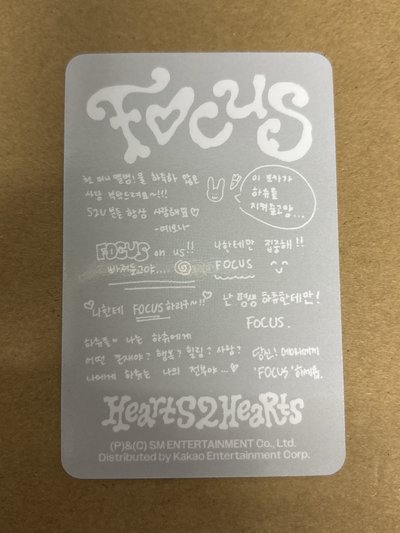 FOCUS
첫 미니 앨범! 많은
사랑 부탁드려요~!!!
S2U 분들 항상 사랑해요♡
이
하츄를
FOCUS on us!!
나한테만 집중해!!
FOCUS
♡나한테 FOCUS 하라구~!!♡
난 평생 하츄한테만!
FOCUS.
하츄들~ 나는 하츄에게
어떤 존재야? 행복? 힐링? 사랑?
나에게 하츄는 나의 전부야...♡
당신!
'FOCUS' 하세요.
HeartS2HeaRts
(P)&(C) SM ENTERTAINMENT Co., Ltd.
Distributed by Kakao Entertainment Corp.